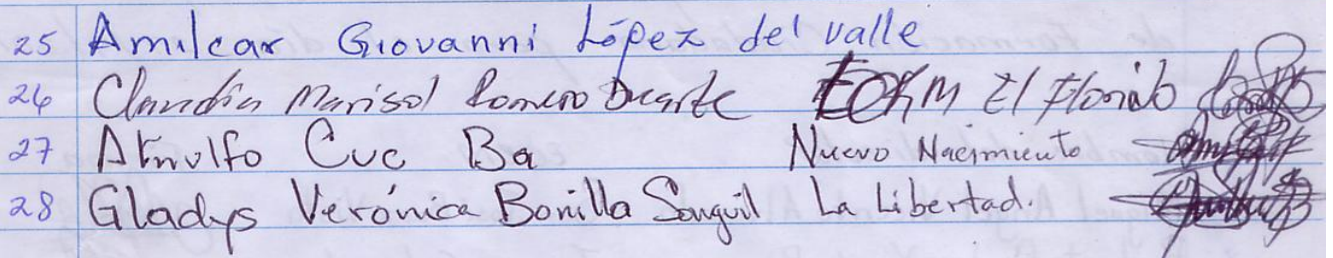 25 Amilcar Giovanni López del valle
26 Claudia Marisol Romero Duarte EORM El Florido
27 Arnulfo Cuc Ba Nuevo Nacimiento
28 Gladys Verónica Bonilla Sanguil La Libertad.